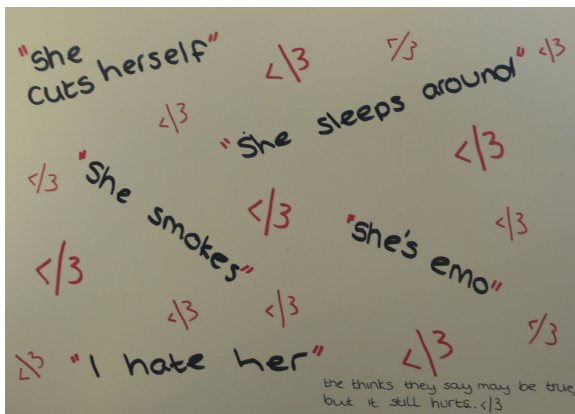 "she
cuts herself"
</3
</3
</3
"she sleeps around"
</3
</3
</3
"she smokes"
</3
</3
"she's emo"
</3
</3
</3
</3
</3
"I hate her"
</3
</3
the thinks they say may be true,
but it still hurts..</3